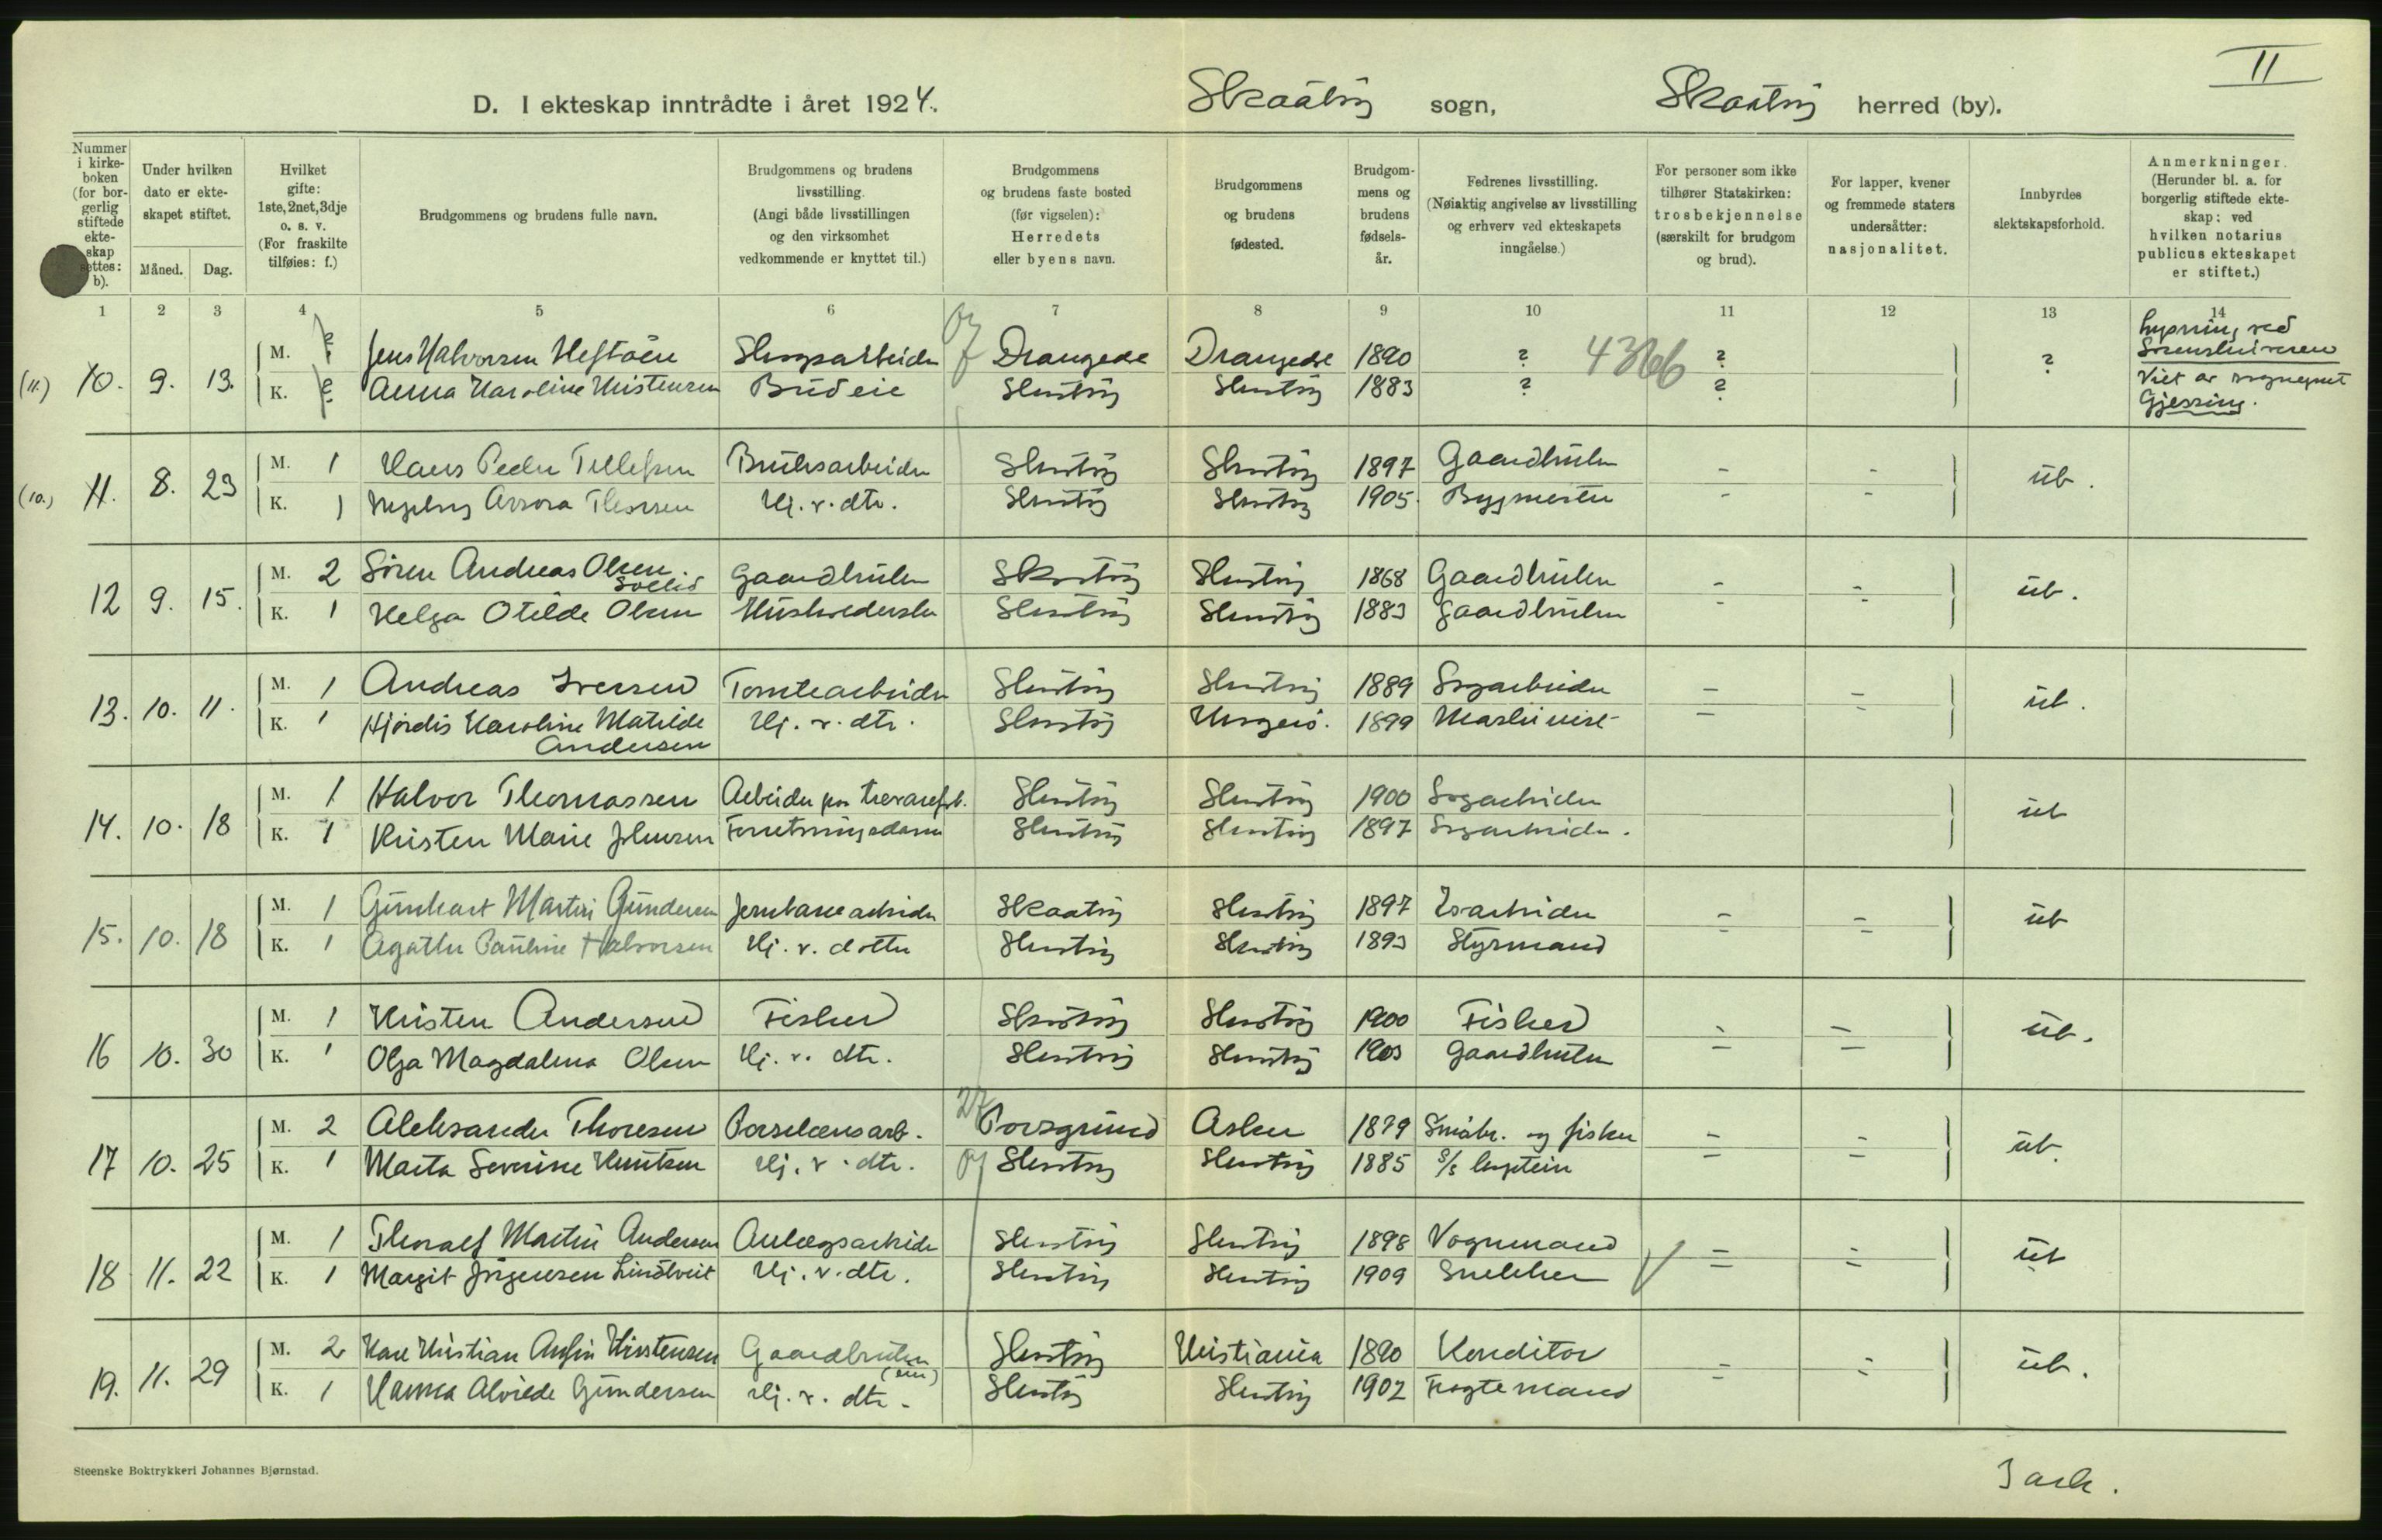 II
D. I ekteskap inntrådte i året 1924. Skaatøy sogn, Skaatøy herred (by).
Nummer i kirke-boken (for bor-gerlig stiftede ekte-skap settes: b).
Under hvilken dato er ekte-skapet stiftet.
Måned. Dag.
Hvilket gifte: 1ste, 2net, 3dje o. s. v. (For fraskilte tilføies: f.)
Brudgommens og brudens fulle navn.
Brudgommens og brudens livsstilling. (Angi både livsstillingen og den virksomhet vedkommende er knyttet til.)
Brudgommens og brudens faste bosted (før vigselen): Herredets eller byens navn.
Brudgommens og brudens fødested.
Brudgom-mens og brudens fødsels-år.
Fedrenes livsstilling. (Nøiaktig angivelse av livsstilling og erhverv ved ekteskapets inngåelse.)
For personer som ikke tilhører Statskirken: trosbekjennelse (særskilt for brudgom og brud).
For lapper, kvener og fremmede staters undersåtter: nasjonalitet.
Innbyrdes slektskapsforhold.
Anmerkninger. (Herunder bl. a. for borgerlig stiftede ekte-skap: ved hvilken notarius publicus ekteskapet er stiftet.)
1 2 3 4 5 6 7 8 9 10 11 12 13 14
(11.) 10. 9. 13. M. ? Jens Halvorsen Heftøen Skogsarbeider Drangede Drangede 1890 ? 4366 ? ? Lysning ved Sorenskriveren
K. ? Anna Karoline Kristensen Budeie Skaatøy Skaatøy 1883 ? ? Viet av sogneprest Gjessing.
(10.) 11. 8. 23 M. 1 Hans Peder Tellefsen Bruksarbeider Skaatøy Skaatøy 1897 Gaardbruker - - ub.
K. 1 Ingeborg Avrora Thorsen Hj. v. dtr. Skaatøy Skaatøy 1905. Bygmester - -
12 9. 15. M. 2 Søren Andreas Olsen Sollid Gaardbruker Skaatøy Skaatøy 1868 Gaardbruker - - ub.
K. 1 Helga Otilde Olsen Husholderske Skaatøy Skaatøy 1883 Gaardbruker - -
13. 10. 11. M. 1 Andreas Iversen Tomtearbeider Skaatøy Skaatøy 1889 Sagarbeider - - ub.
K. 1 Hjørdis Karoline Matilde Andersen Hj. v. dtr. Skaatøy Kragerø. 1899 Maskinist - -
14. 10. 18 M. 1 Halvor Thomassen Arbeider paa trevarefabr. Skaatøy Skaatøy 1900 Sagarbeider ub
K. 1 Kristen Marie Johnsen Forretningsdame Skaatøy Skaatøy 1897 Sagarbeider.
15. 10. 18 M. 1 Gunhart Martin Gundersen Jernbanearbeider Skaatøy Skaatøy 1897 Isarbeider - - ub
K. 1 Agathe Pauline Halvorsen Hj. v. datter Skaatøy Skaatøy 1893 Styrmand - -
16 10. 30 M. 1 Kristen Andersen Fisker Skaatøy Skaatøy 1900 Fisker - - ub.
K. 1 Olga Magdalena Olsen Hj. v. dtr. Skaatøy Skaatøy 1903 Gaardbruker - -
17 10. 25 M. 2 Aleksander Thoresen Porselensarb. 27 Porsgrund Asker 1879 Småbr. og fisker - - ub.
K. 1 Marta Severine Knutsen Hj. v. dtr. 07 Skaatøy Skaatøy 1885 S/S kaptein - -
18 11. 22 M. 1 Thoralf Martin Andersen Anlægsarbeider Skaatøy Skaatøy 1898 Vognmand - - ub
K. 1 Margit Jørgensen Lindtveit Hj. v. dtr. Skaatøy Skaatøy 1909 Snekker - -
19. 11. 29 M. 2 Gaardbruker Skaatøy Kristiania 1890 Konditor - - ub.
K. 1 Hanna Alvilde Gundersen Hj. v. dtr. Skaatøy Skaatøy 1902 Fragtemand - -
Steenske Boktrykkeri Johannes Bjørnstad.
3 ark.